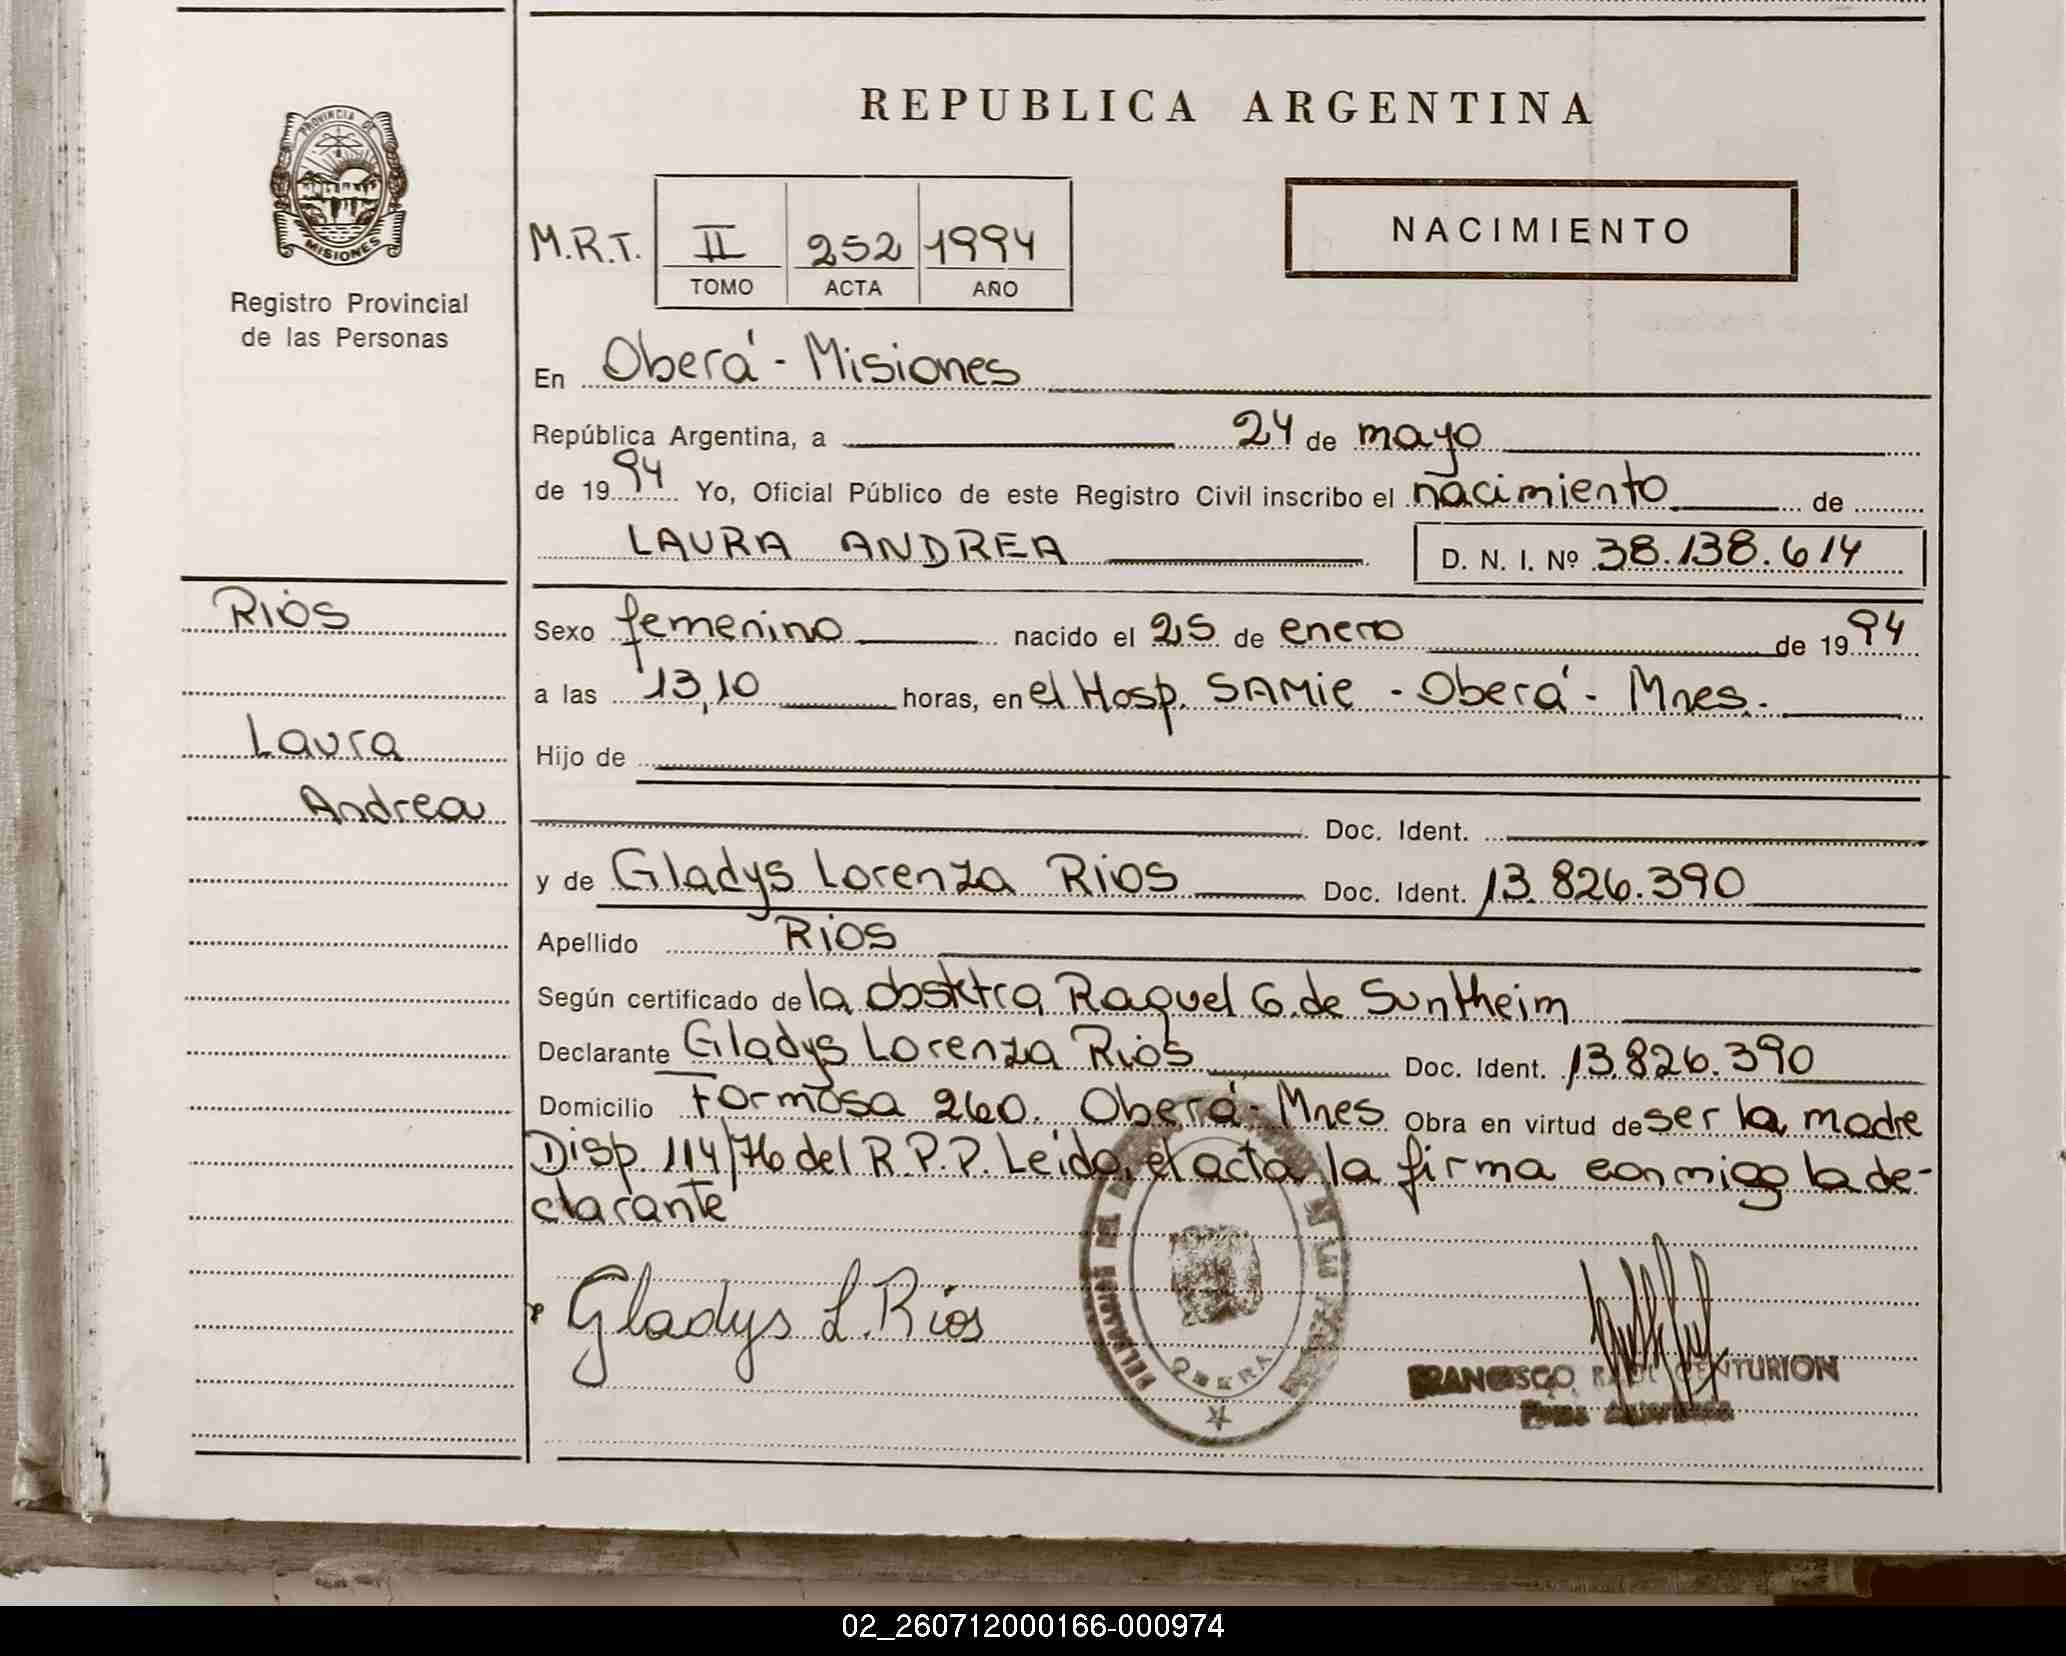 REPUBLICA ARGENTINA
PROVINCIA DE
MISIONES
Registro Provincial
de las Personas
NACIMIENTO
M.R.T. II 252 1994
TOMO ACTA AÑO
En Oberá - Misiones
República Argentina, a 24 de mayo
de 1994 Yo, Oficial Público de este Registro Civil inscribo el nacimiento de
LAURA ANDREA D. N. I. Nº 38.138.614
Rios
Sexo femenino nacido el 25 de enero de 1994
a las 13,10 horas, en el Hosp. SAMIC - Oberá - Mnes.
Laura
Hijo de
Andrea
Doc. Ident.
y de Gladys Lorenza Rios Doc. Ident. 13.826.390
Apellido Rios
Según certificado de la obstetra Raquel G. de Suntheim
Declarante Gladys Lorenza Rios Doc. Ident. 13.826.390
Domicilio Formosa 260. Oberá - Mnes Obra en virtud de ser la madre
Disp 114/76 del R.P.P. Leida el acta la firma conmigo la de-
clarante
Gladys L. Rios
OBERA
FRANCISCO RAUL CENTURION
02_260712000166-000974